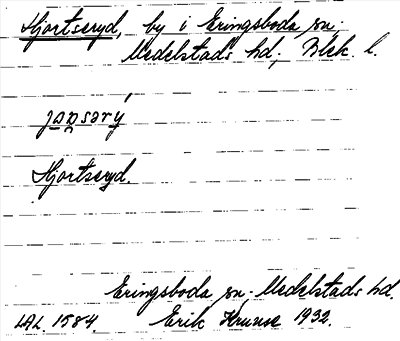 Hjortseryd, by i Eringsboda sn.
Medelstads hd; Blek. l.
Hjortseryd.
Eringsboda sn. Medelstads hd.
LAL. 1584. Erik Kruuse 1932.